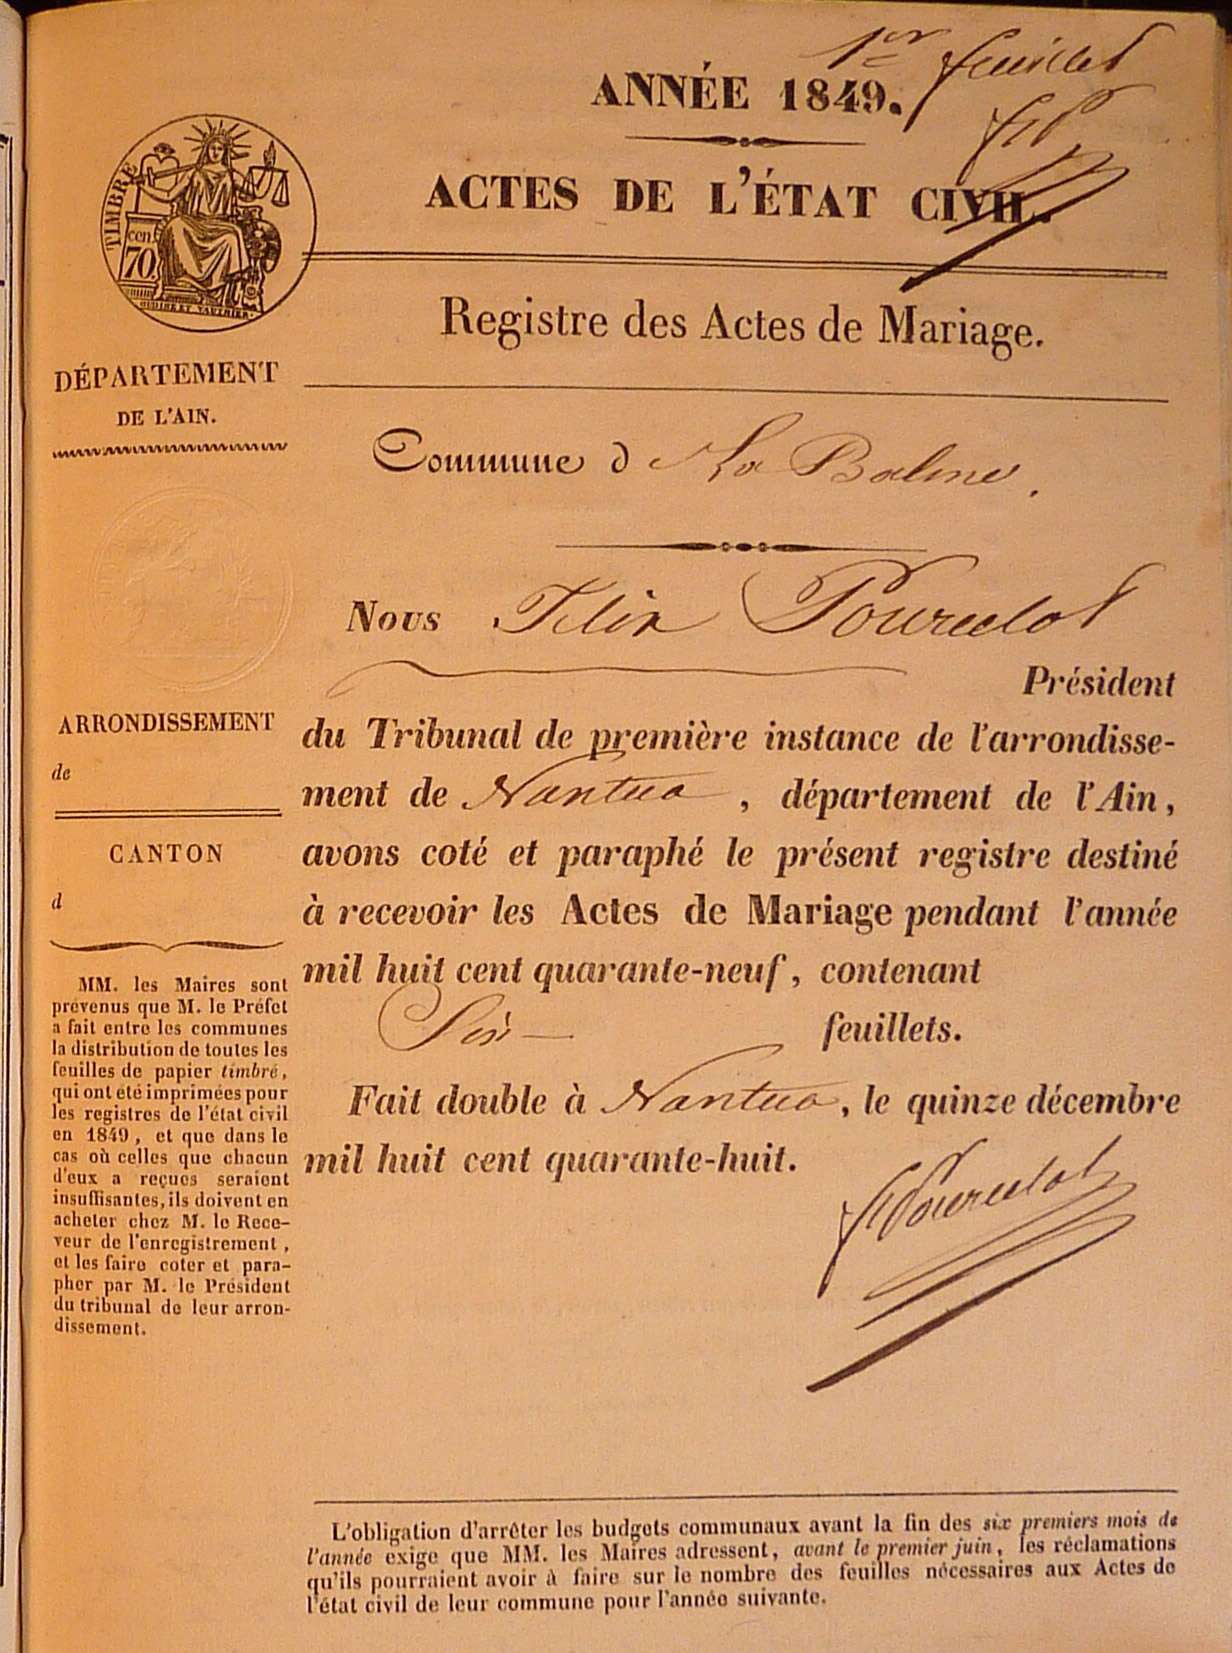 1er feuillet
ANNÉE 1849.
ACTES DE L'ÉTAT CIVIL.
TIMBRE
cen.
70.
Registre des Actes de Mariage.
DÉPARTEMENT
DE L'AIN.
Commune d La Balme.
Nous Félix Pourcelot
Président
du Tribunal de première instance de l'arrondisse-
ment de Nantua, département de l'Ain,
avons coté et paraphé le présent registre destiné
à recevoir les Actes de Mariage pendant l'année
mil huit cent quarante-neuf, contenant
Six feuillets.
Fait double à Nantua, le quinze décembre
mil huit cent quarante-huit.
FPourcelot
ARRONDISSEMENT
de
CANTON
d
MM. les Maires sont
prévenus que M. le Préfet
a fait entre les communes
la distribution de toutes les
feuilles de papier timbré,
qui ont été imprimées pour
les registres de l'état civil
en 1849, et que dans le
cas où celles que chacun
d'eux a reçues seraient
insuffisantes, ils doivent en
acheter chez M. le Rece-
veur de l'enregistrement,
et les faire coter et para-
pher par M. le Président
du tribunal de leur arron-
dissement.
L'obligation d'arrêter les budgets communaux avant la fin des six premiers mois de
l'année exige que MM. les Maires adressent, avant le premier juin, les réclamations
qu'ils pourraient avoir à faire sur le nombre des feuilles nécessaires aux Actes de
l'état civil de leur commune pour l'année suivante.